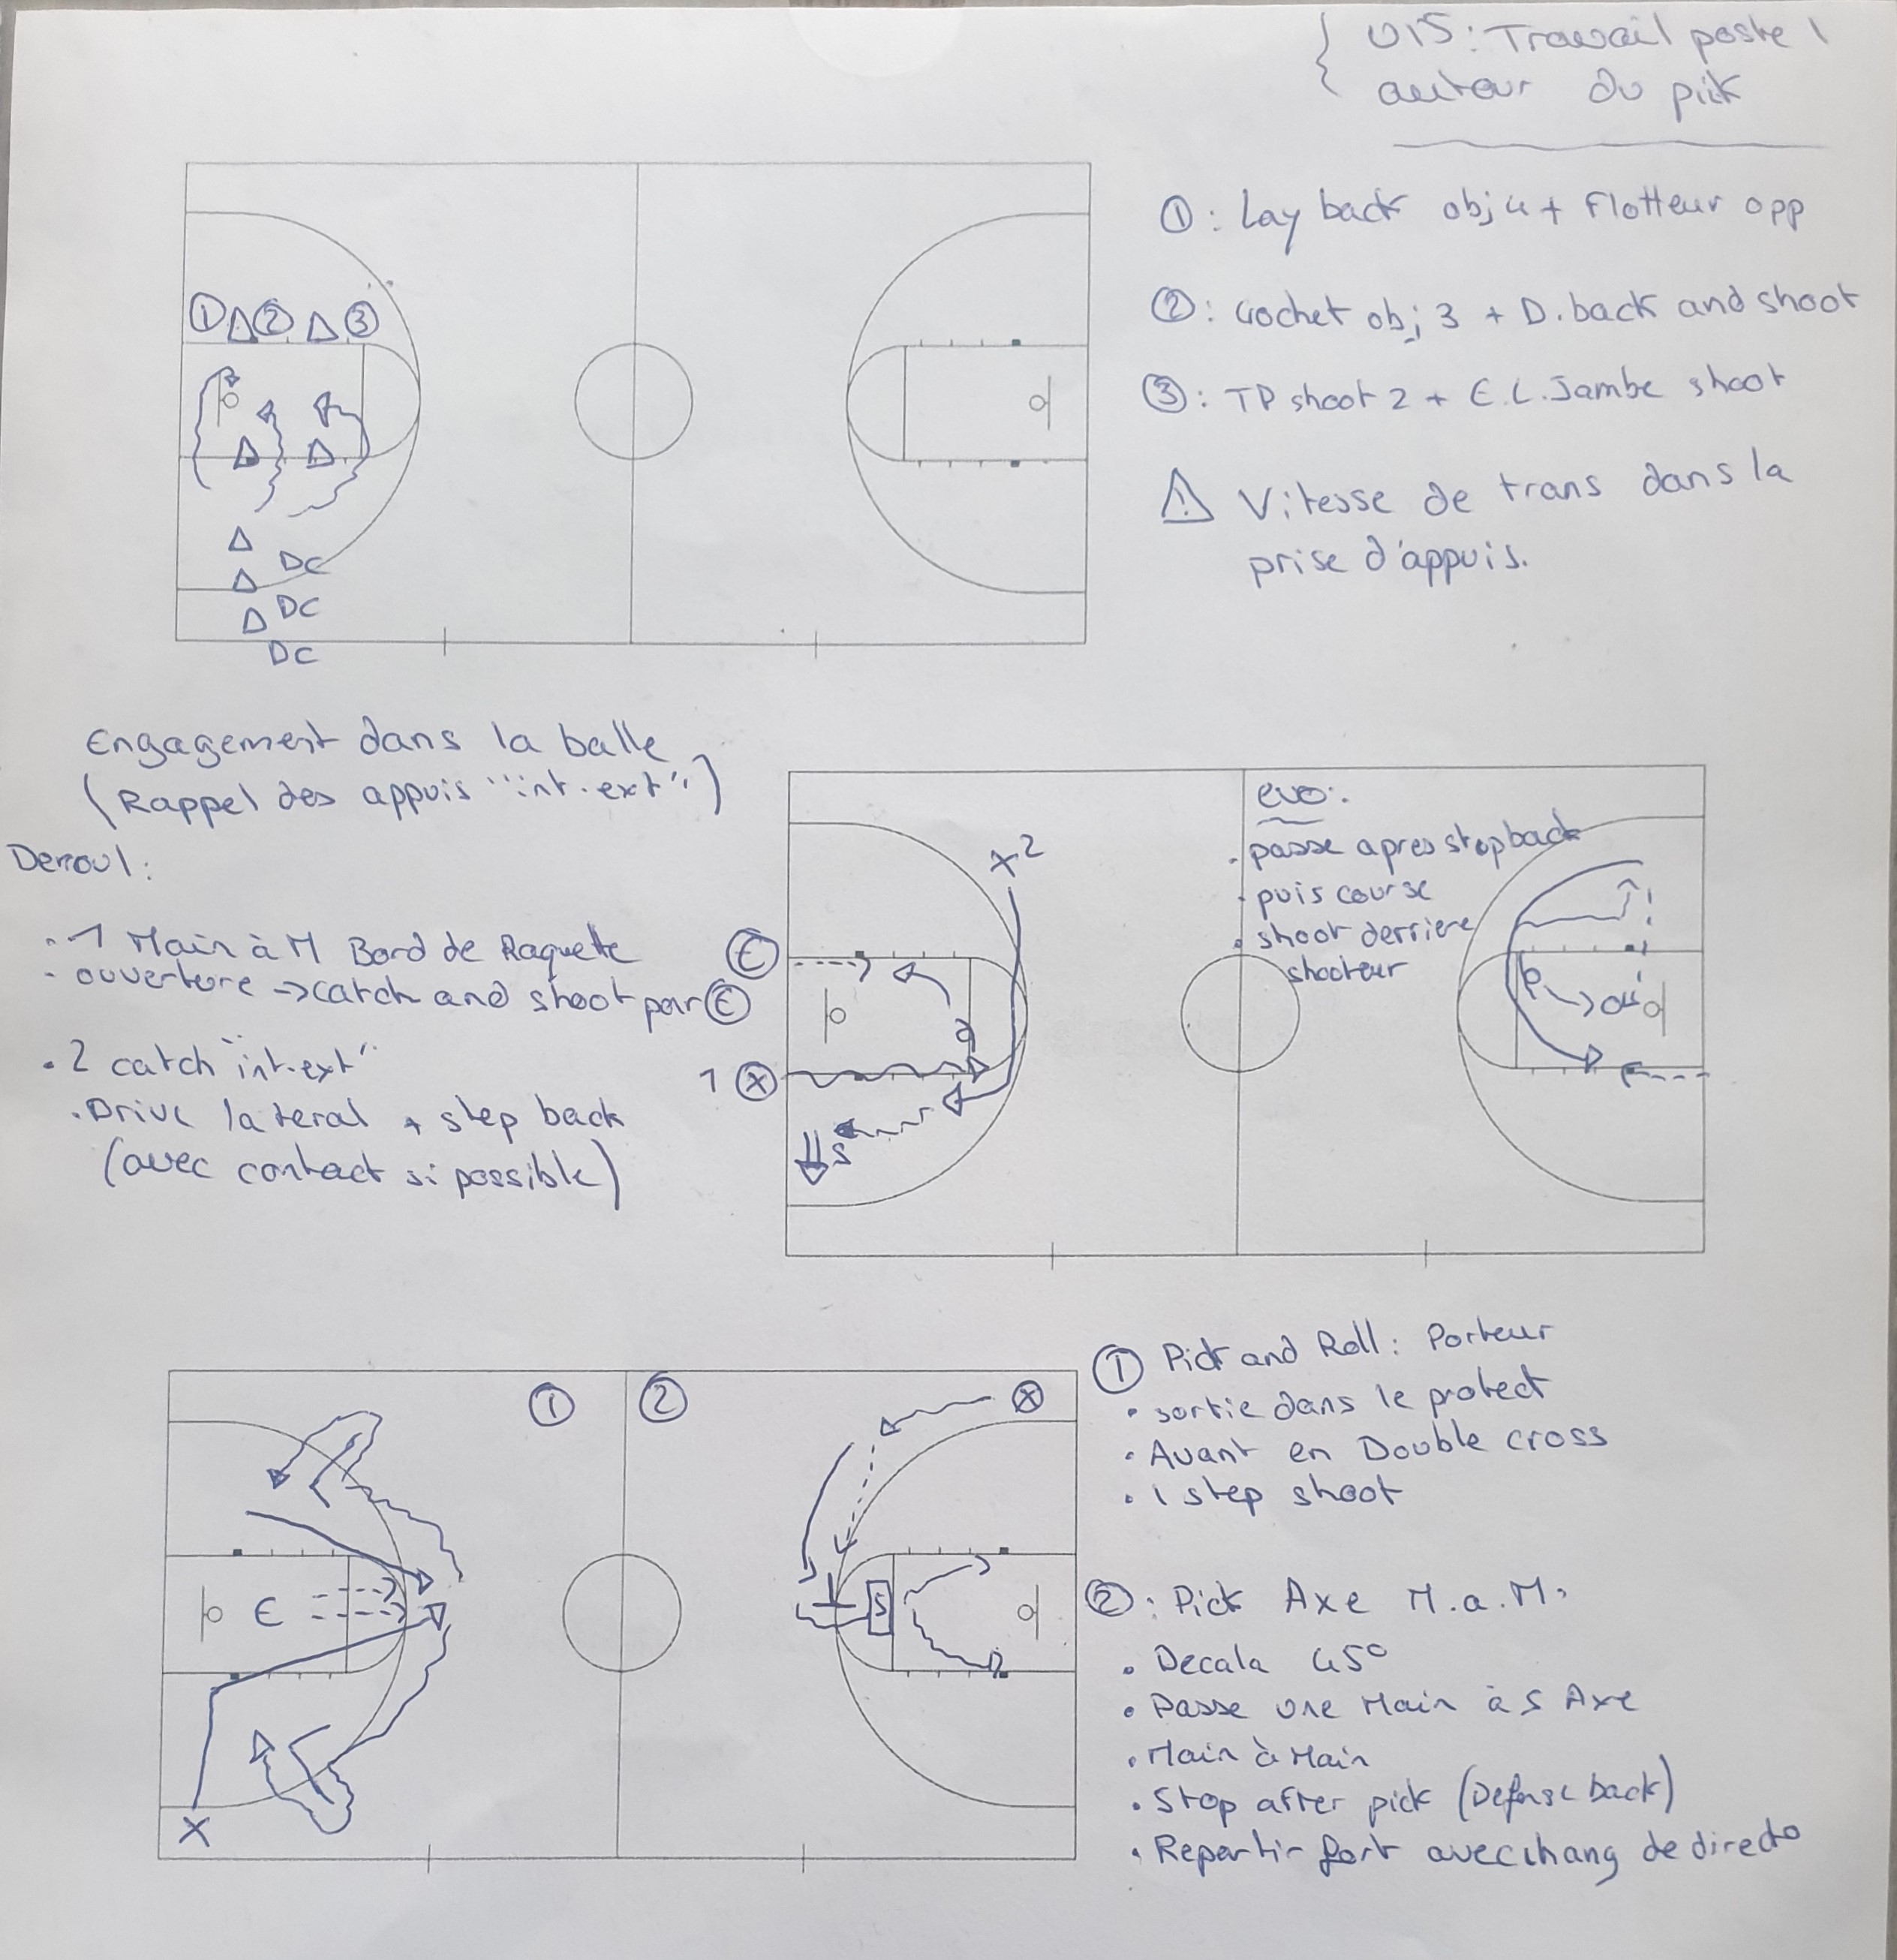 U15: Travail poste 1
autour du pick
①: Lay back obj 4 + Flotteur opp
②: crochet obj 3 + D. back and shoot
③: TP shoot 2 + E.L. Jambe shoot
⚠ Vitesse de trans dans la
prise d'appuis.
① ② ③
DC
DC
DC
Engagement dans la balle
(Rappel des appuis "int-ext")
Deroul:
- 1 Main à M Bord de Raquette
- ouverture → catch and shoot par Ⓒ
• 2 catch "int-ext"
• Drive lateral + step back
(avec contact si possible)
X 2
Ⓒ
1 Ⓧ
S
evo:
• passe apres stepback
• puis course
• shoot derriere
shooteur
ou
① ②
Ⓧ
C
S
X
① Pick and Roll: Porteur
• sortie dans le protect
• Avant en Double cross
• 1 step shoot
②: Pick Axe M.a.M:
• Decala 45°
• Passe une Main à 5 Axe
• Main à Main
• Stop after pick (Defense back)
• Repartir fort avec chang de directo